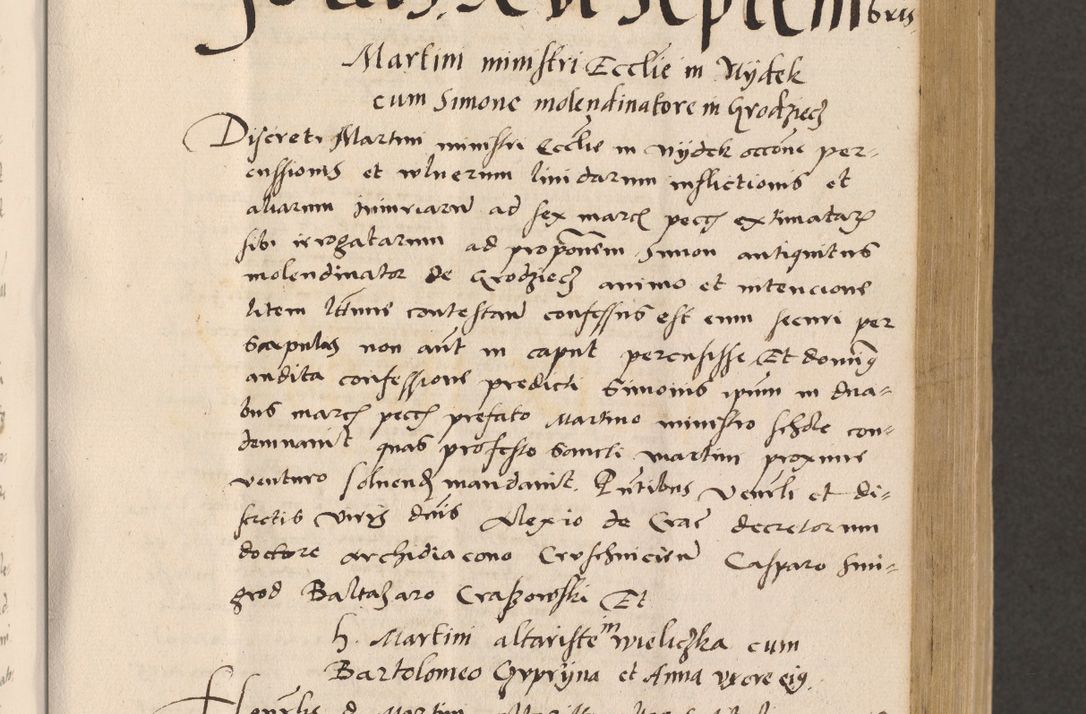 Septembris
Martini ministri Ecclie in Nydek
cum Simone molendinatore in Grodziecz
Discreti Martini ministri Ecclie in Nydek occone per-
cussionis et wlnerum liuidarum inflictionis et
aliarum iniuriarum ad sex marc pecc extimatarum
sibi irrogatarum ad propōnem Simon antiquitus
molendinator de Grodziecz animo et intencione
litem lttime contestan confessus est eum securi per
Scapulas non aūt in caput percussisse Et dominus
audita confessione predicti Simonis ipsum in dua-
bus marc pecc prefato Martino ministro schole con-
demnauit quas pro festo Sancti Martini proxime
venturo soluend mandauit. Pntibus Venerli et di-
scretis viris dnis Alexio de Crac decretorum
doctore archidiacono Crvschuicien Casparo Smi-
grod Baltazaro Craszowski Et
h. Martini altariste in wieliczka cum
Bartolomeo Gypryna et Anna vxore eius
Honerlis d. Martini